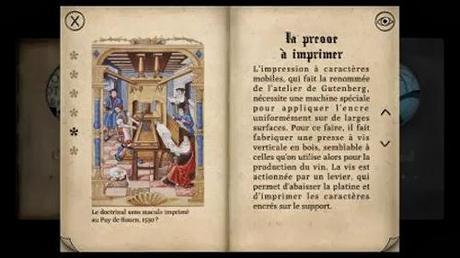 Le doctrinal sans macule imprimé
au Puy de Rouen, 1530 ?
la presse
à imprimer
L'impression à caractères
mobiles, qui fait la renommée
de l'atelier de Gutenberg,
nécessite une machine spéciale
pour appliquer l'encre
uniformément sur de larges
surfaces. Pour ce faire, il fait
fabriquer une presse à vis
verticale en bois, semblable à
celles qu'on utilise alors pour la
production du vin. La vis est
actionnée par un levier, qui
permet d'abaisser la platine et
d'imprimer les caractères
encrés sur le support.